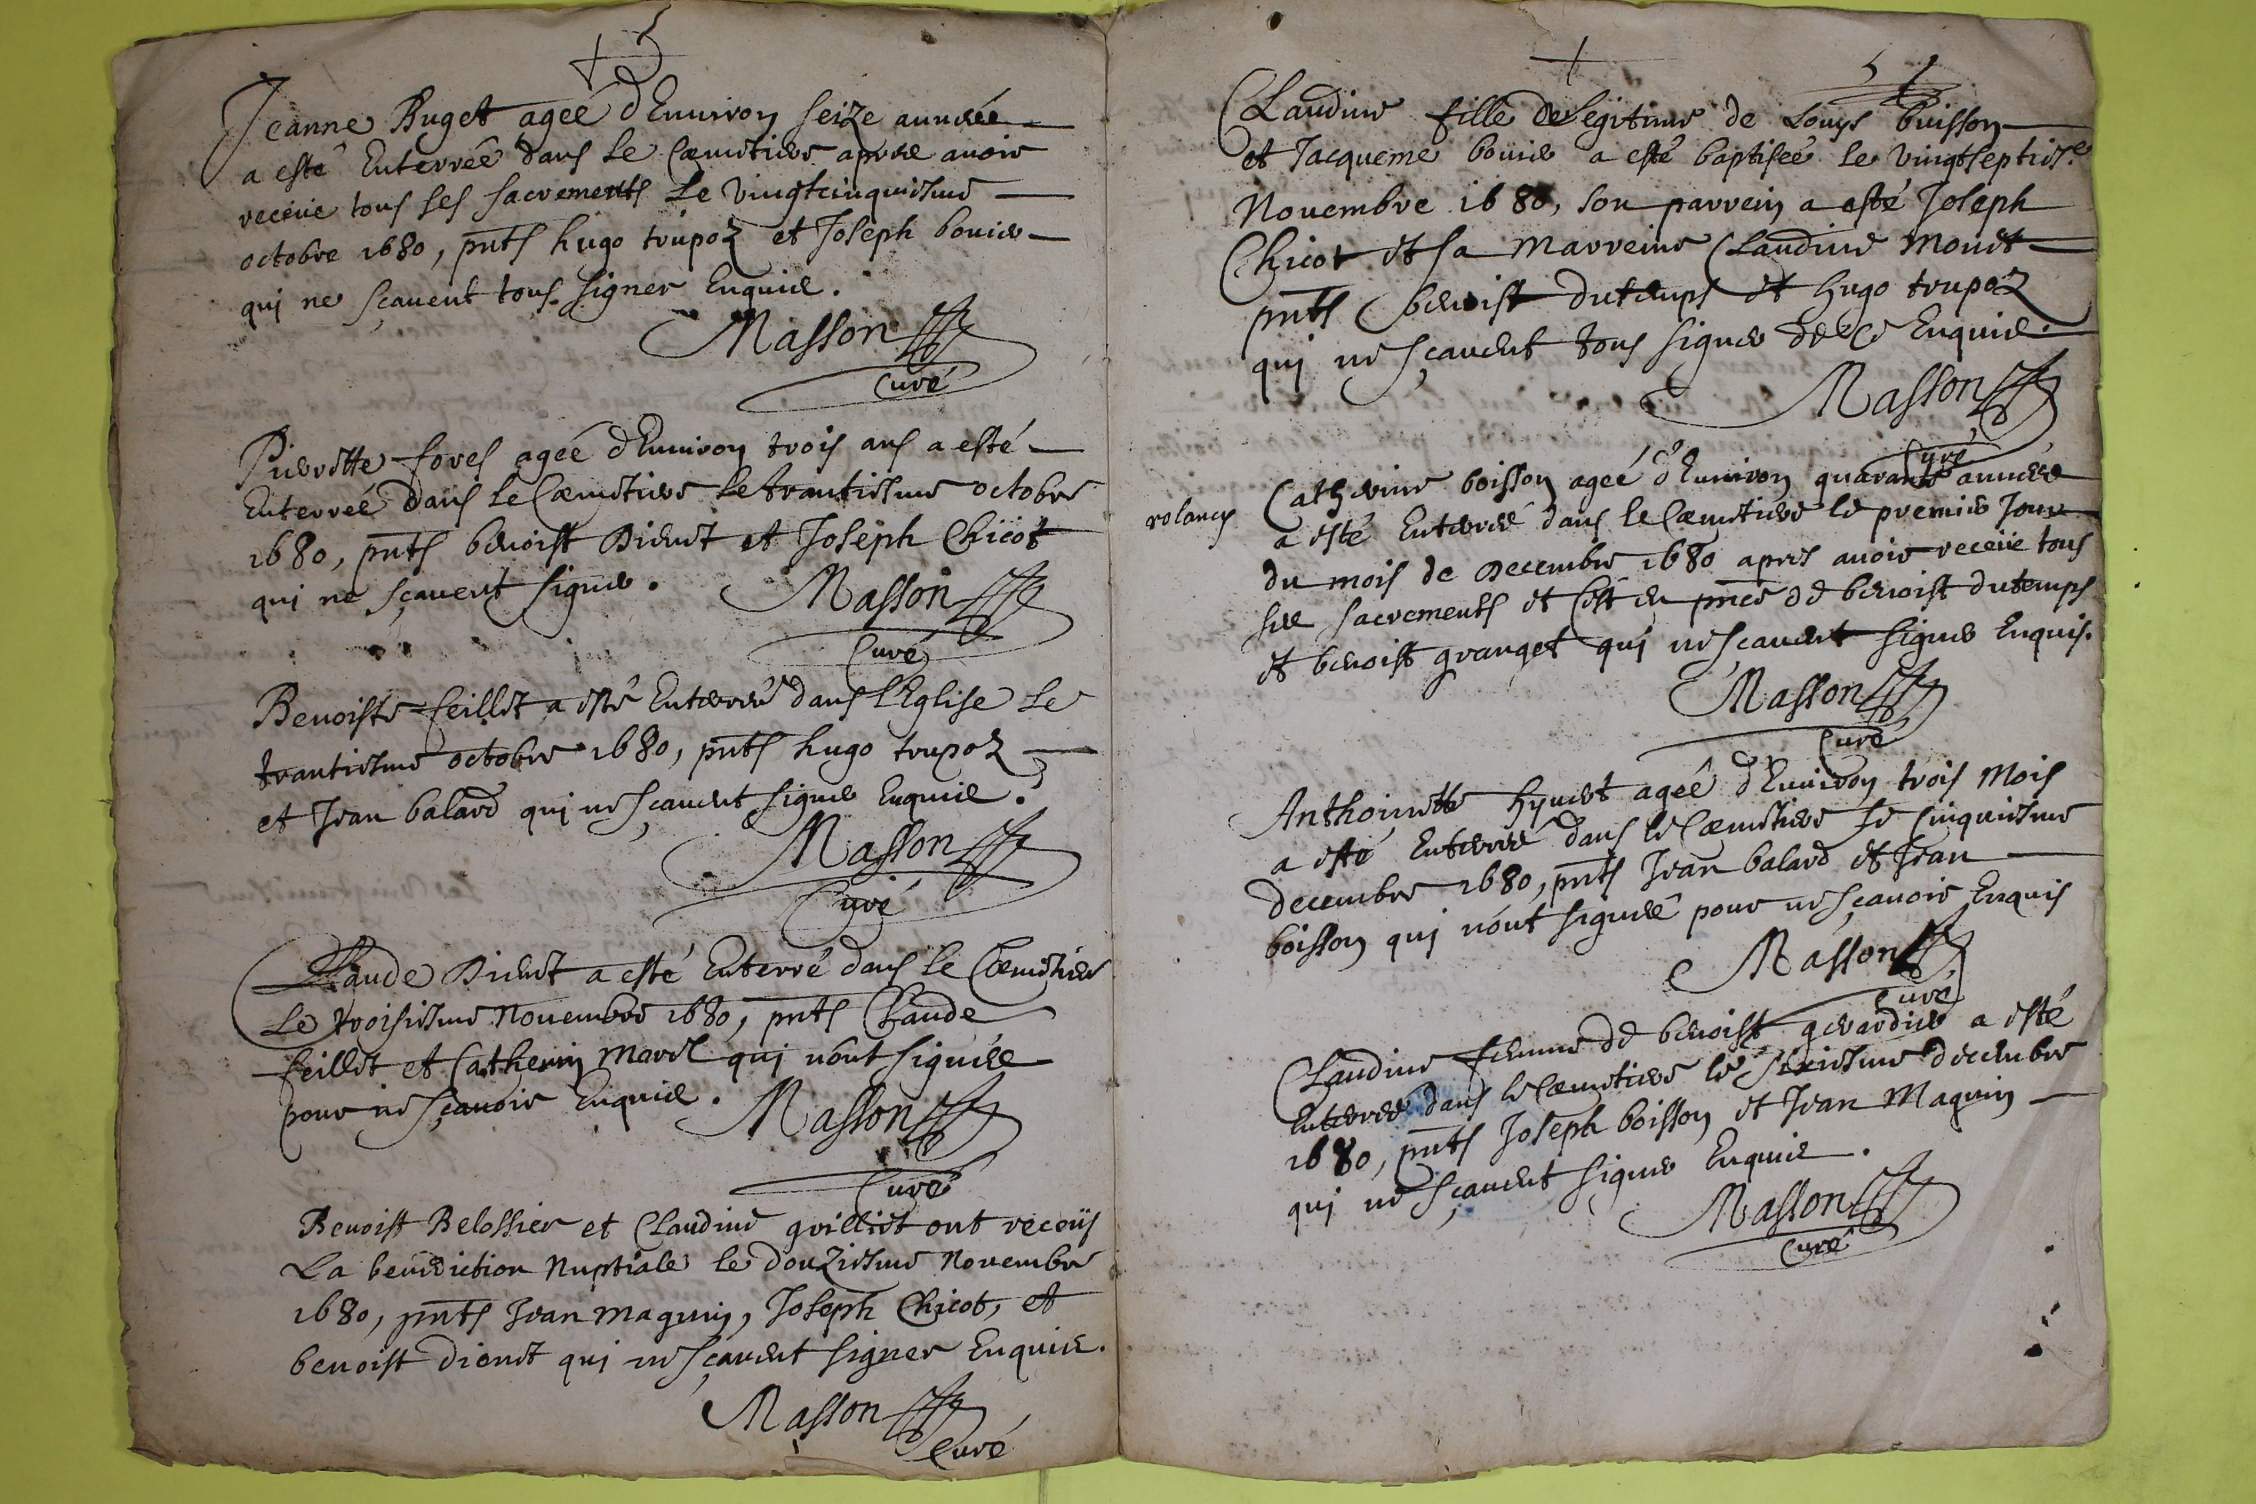 Jeanne Buget ageé d'Enuiron seize anneés
a esté Enterreé dans le Cœmetiere apres auoir
receue tous ses sacrements Le Vingtcinquiesme
octobre 1680, pnts hugo trupoz et Joseph bouier
qui ne sçauent tous signer Enquis.
Masson
Curé
Pierrette fores ageé d'Enuiron trois ans a esté
Enterreé dans le Cœmetiere le trantiesme octobre
1680, pnts benoist Dienet et Joseph Chicot
qui ne sçauent signer.
Masson
Curé
Benoiste feillet a esté Enterreé dans l'Eglise Le
trantiesme octobre 1680, pnts hugo trupoz
et Jean balard qui ne sçauent signer Enquis.
Masson
Curé
Claude Dienet a esté Enterré dans le Cœmetiere
Le troisiesme Nouembre 1680, pnts Claude
feillet et Catherin Morel qui n'ont signés
pour ne sçauoir Enquis.
Masson
Curé
Benoist Belossier et Claudine grilliet ont receüs
La benediction Nuptiale le douziesme Nouembre
1680, pnts Jean maguin, Joseph Chicot, et
benoist dienet qui ne sçauent signer Enquis.
Masson
Curé
Claudine fille de Legitime de Louys buisson
et Jacqueme bouier a esté baptiseé le vingtsepties.e
Nouembre 1680, son parrein a esté Joseph
Chicot et sa marreine Claudine monet
pnts benoist dutemps et hugo trupoz
qui ne sçauent tous signer de ce Enquis.
Masson
Curé
rolancy
Catherine boisson ageé d'Enuiron quarante anneés
a esté Enterreé dans le Cœmetiere le premier Jour
du mois de Decembre 1680 apres auoir receue tous
ses sacrements et c'est en pnce de benoist dutemps
et benoist granget qui ne sçauent signer Enquis.
Masson
Curé
Anthoinette hyuert ageé d'Enuiron trois mois
a esté Enterreé dans le Cœmetiere le Cinquiesme
decembre 1680, pnts Jean balard et Jean
boisson qui n'ont signeés pour ne sçauoir Enquis
Masson
Curé
Claudine femme de benoist gerardier a esté
Enterreé dans le Cœmetiere le sixiesme decembre
1680, pnts Joseph boisson et Jean Maguin
qui ne sçauent signer Enquis.
Masson
Curé